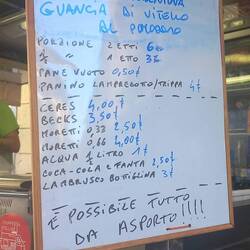 GUANCIA DI VITELLO
AL POMODORO
PORZIONE 2 ETTI 6€
½ " 1 ETTO 3€
PANE VUOTO 0,50€
PANINO LAMPREDOTTO/TRIPPA 4€
CERES 4,00€
BECKS 3,50€
MORETTI 0,33 2,50€
MORETTI 0,66 4,00€
ACQUA ½ LITRO 1€
COCA-COLA E FANTA 2,50€
LAMBRUSCO BOTTIGLINA 3€
È POSSIBILE TUTTO
DA ASPORTO!!!!